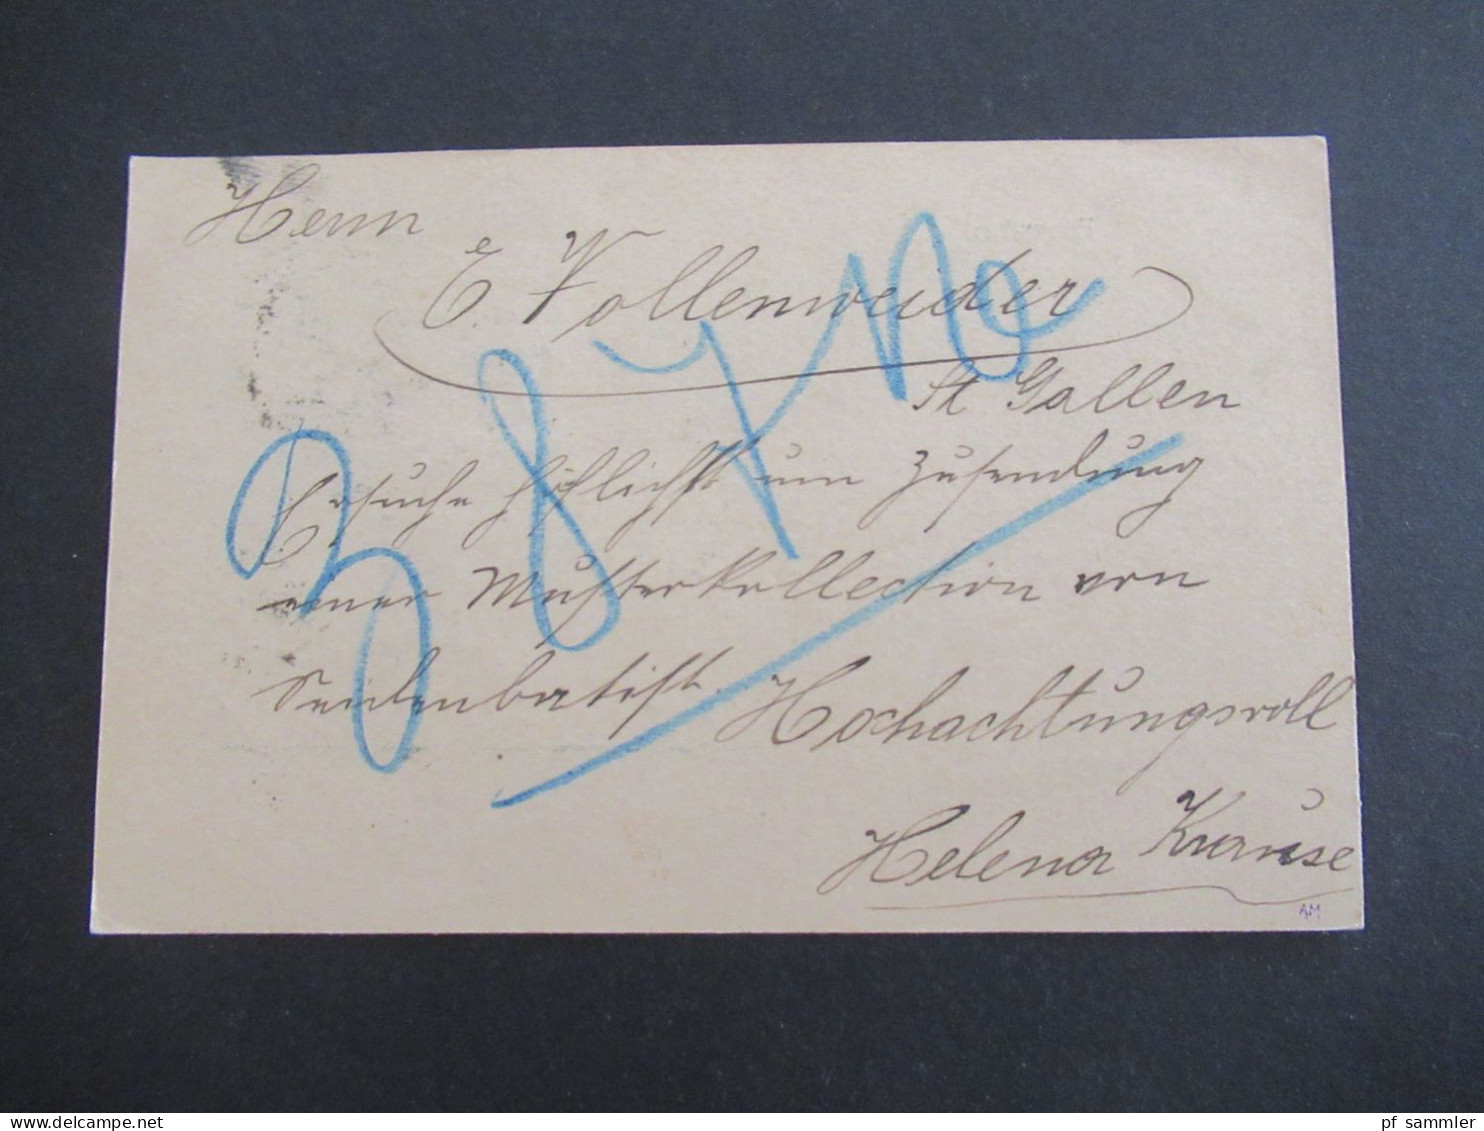 Herrn
E. Vollenweider
St Gallen
Ersuche höflichst um Zusendung
einer Musterkollection von
Seidenbatist. Hochachtungsvoll
Helena Krause
AM
www.delcampe.net
pf_sammler